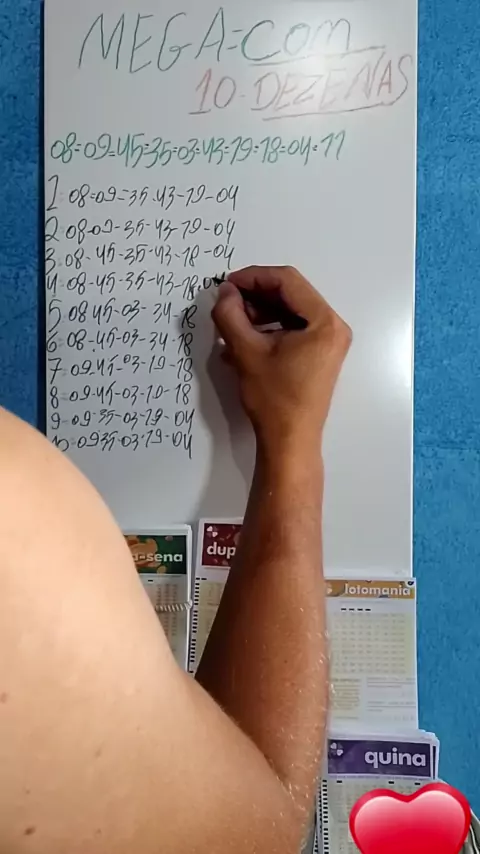 MEGA=COM
10-DEZENAS
08=09=45=35=03=43=19=18=04=11
1=08=09=35-43-19-04
2=08-09-35-43-19-04
3=08-45-35-43-18-04
4=08-45-35-43-18-04
5 08 45-03-34-18
6=08-45-03-34-18
7=09-45-03-19-18
8=09-45-03-19-18
9-09-35-03-19-04
10=09 35-03-19-04
-sena
dup
lotomania
quina